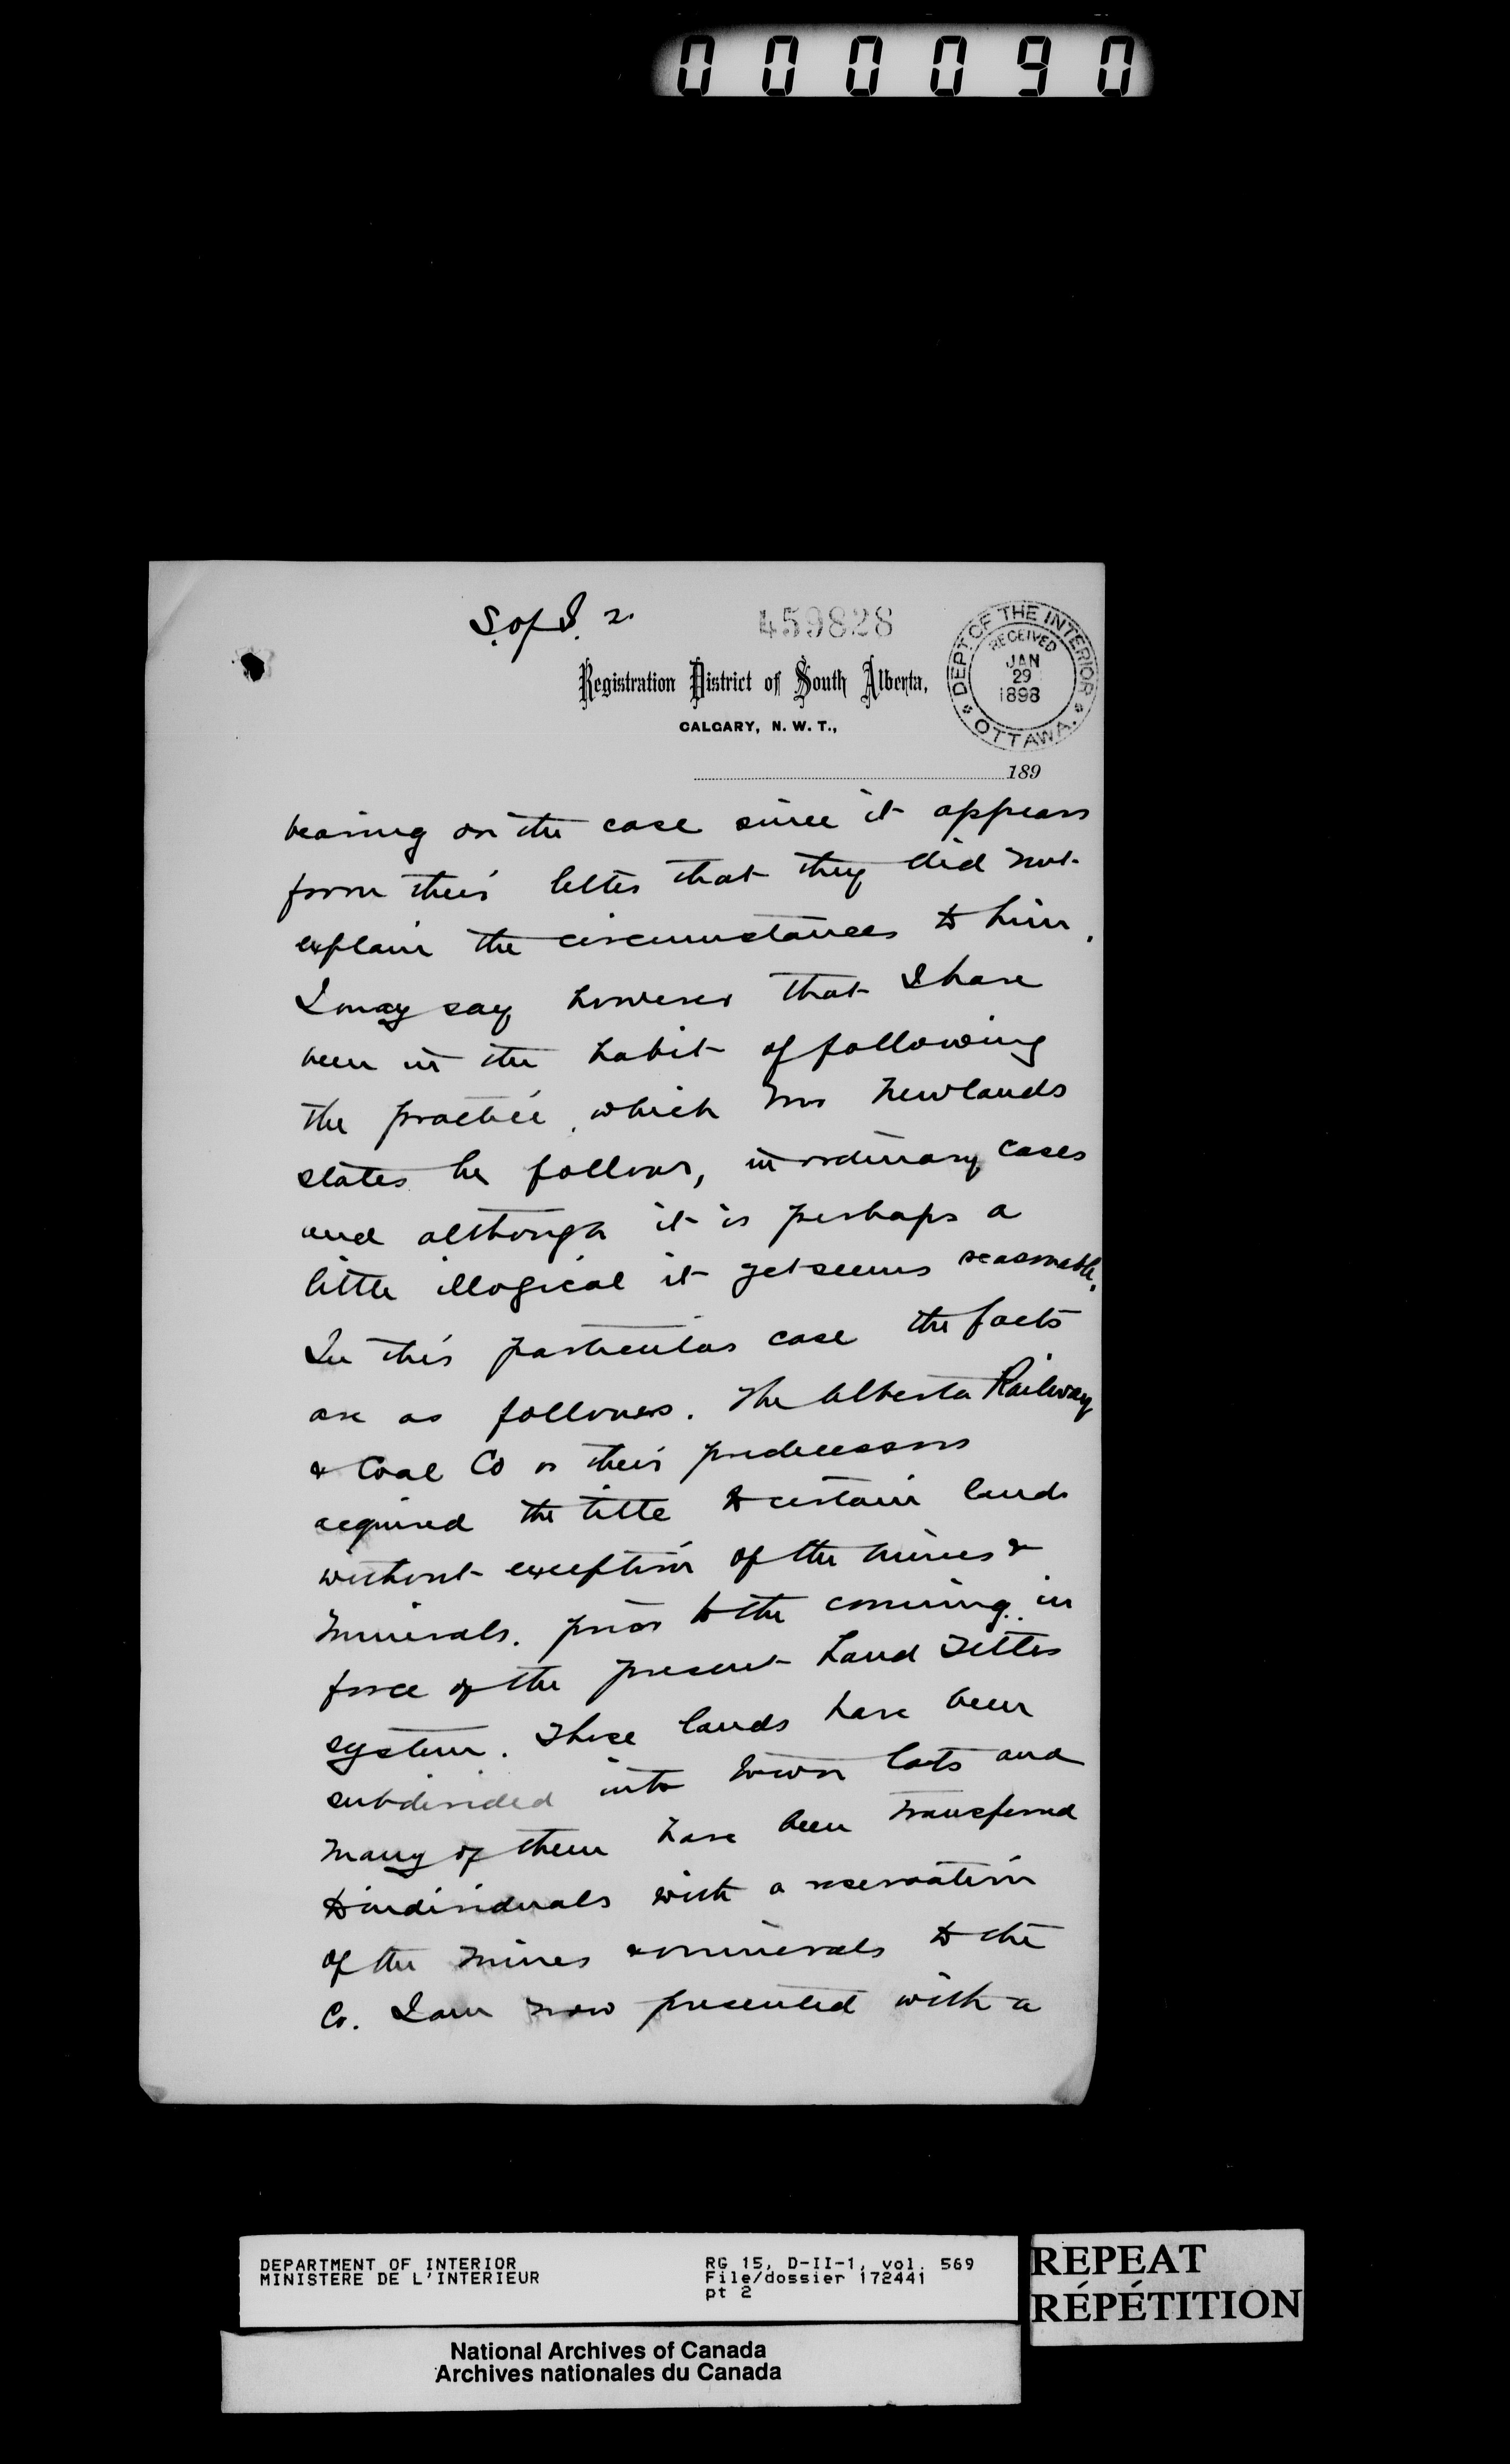 000090
S. of I. 2.
459828
DEPT. OF THE INTERIOR
RECEIVED
JAN
29
1898
OTTAWA.
Registration District of South Alberta,
CALGARY, N. W. T.,
189
bearing on the case since it appears
from their letter that they did not
explain the circumstances to him.
I may say however that I have
been in the habit of following
the practice, which Mr Newlands
states he follows, in ordinary cases
and although it is perhaps a
little illogical it yet seems reasonable.
In this particular case the facts
are as follows. The Alberta Railway
& Coal Co or their predecessors
acquired the title to certain lands
without exception of the mines &
minerals. prior to the coming in
force of the present Land Titles
system. These lands have been
subdivided into town lots and
many of them have been transferred
to individuals with a reservation
of the mines & minerals to the
Co. I am now presented with a
DEPARTMENT OF INTERIOR
MINISTERE DE L'INTERIEUR
RG 15, D-II-1, vol. 569
File/dossier 172441
pt 2
REPEAT
RÉPÉTITION
National Archives of Canada
Archives nationales du Canada